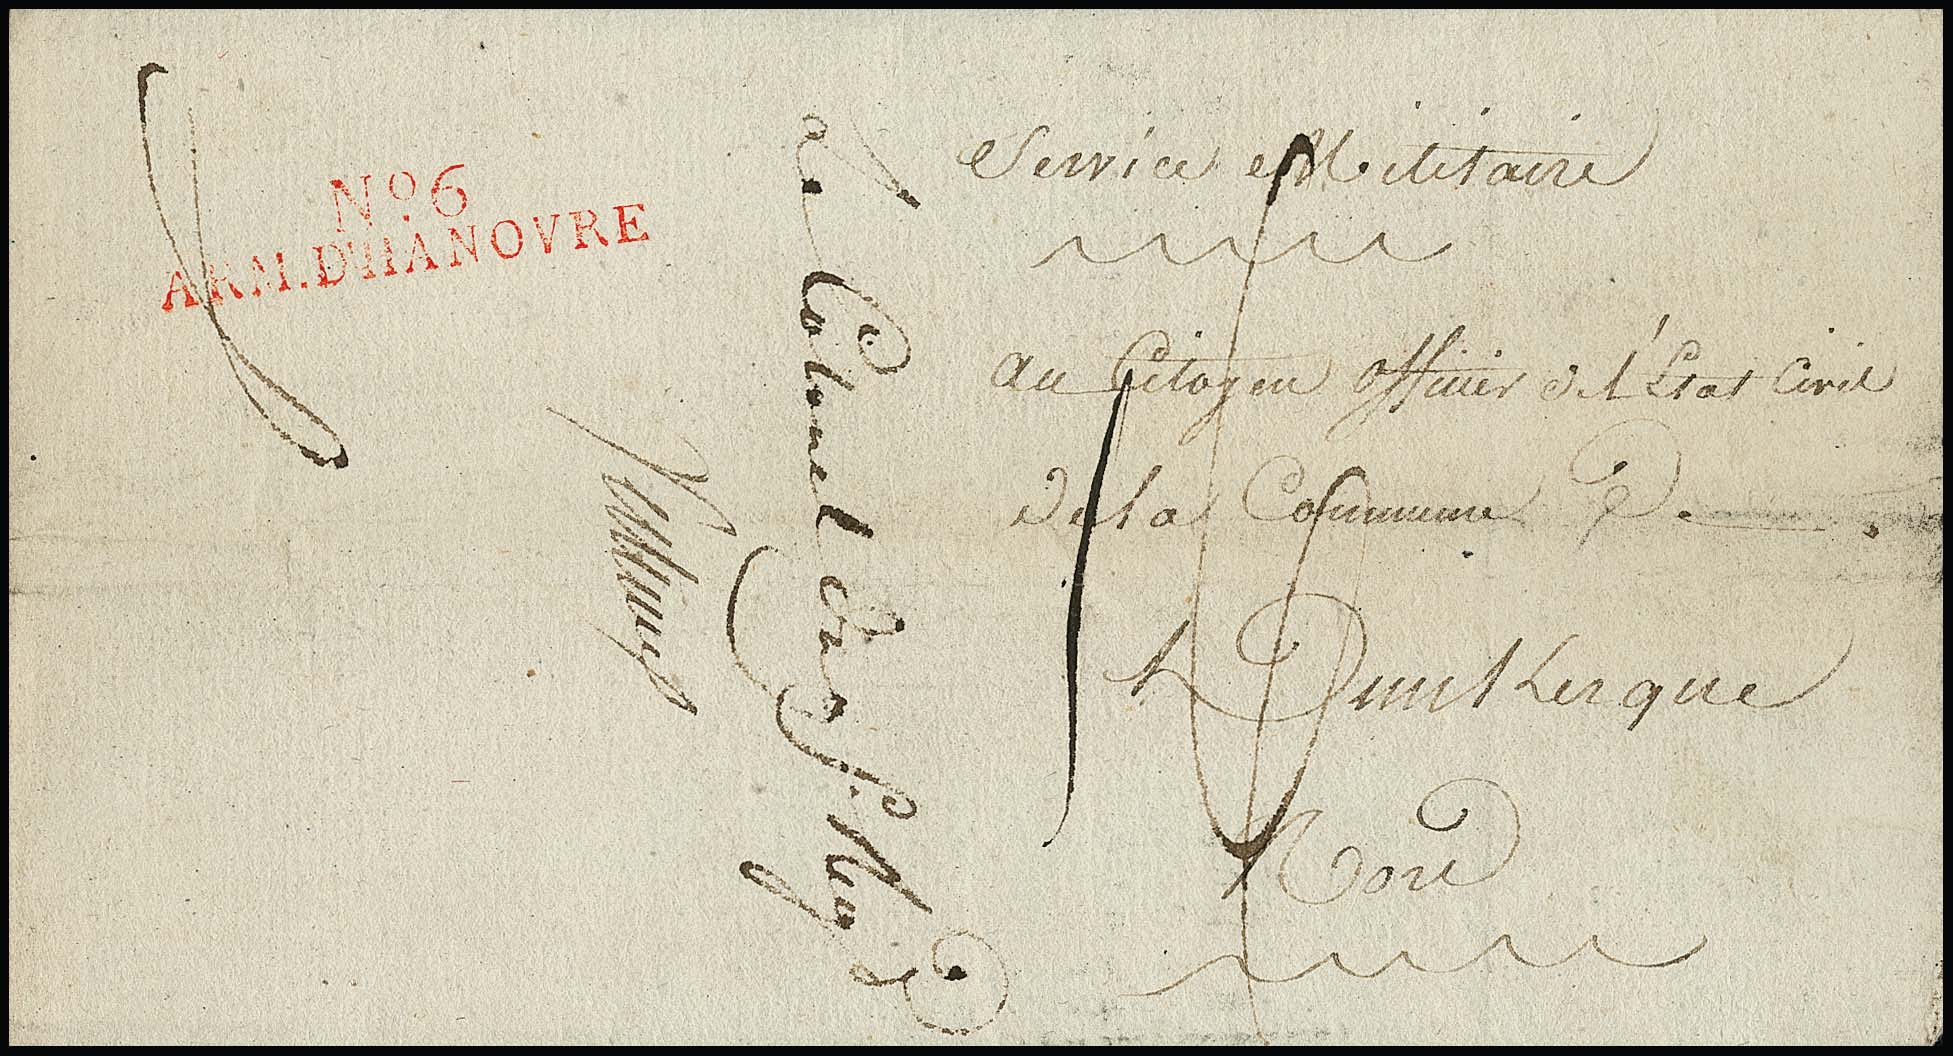 No. 6
ARM. D'HANOVRE
Service Militaire
au Citoyen officier de l'Etat Civil
de la Commune De
à Dunkerque
Nord
Le Colonel du